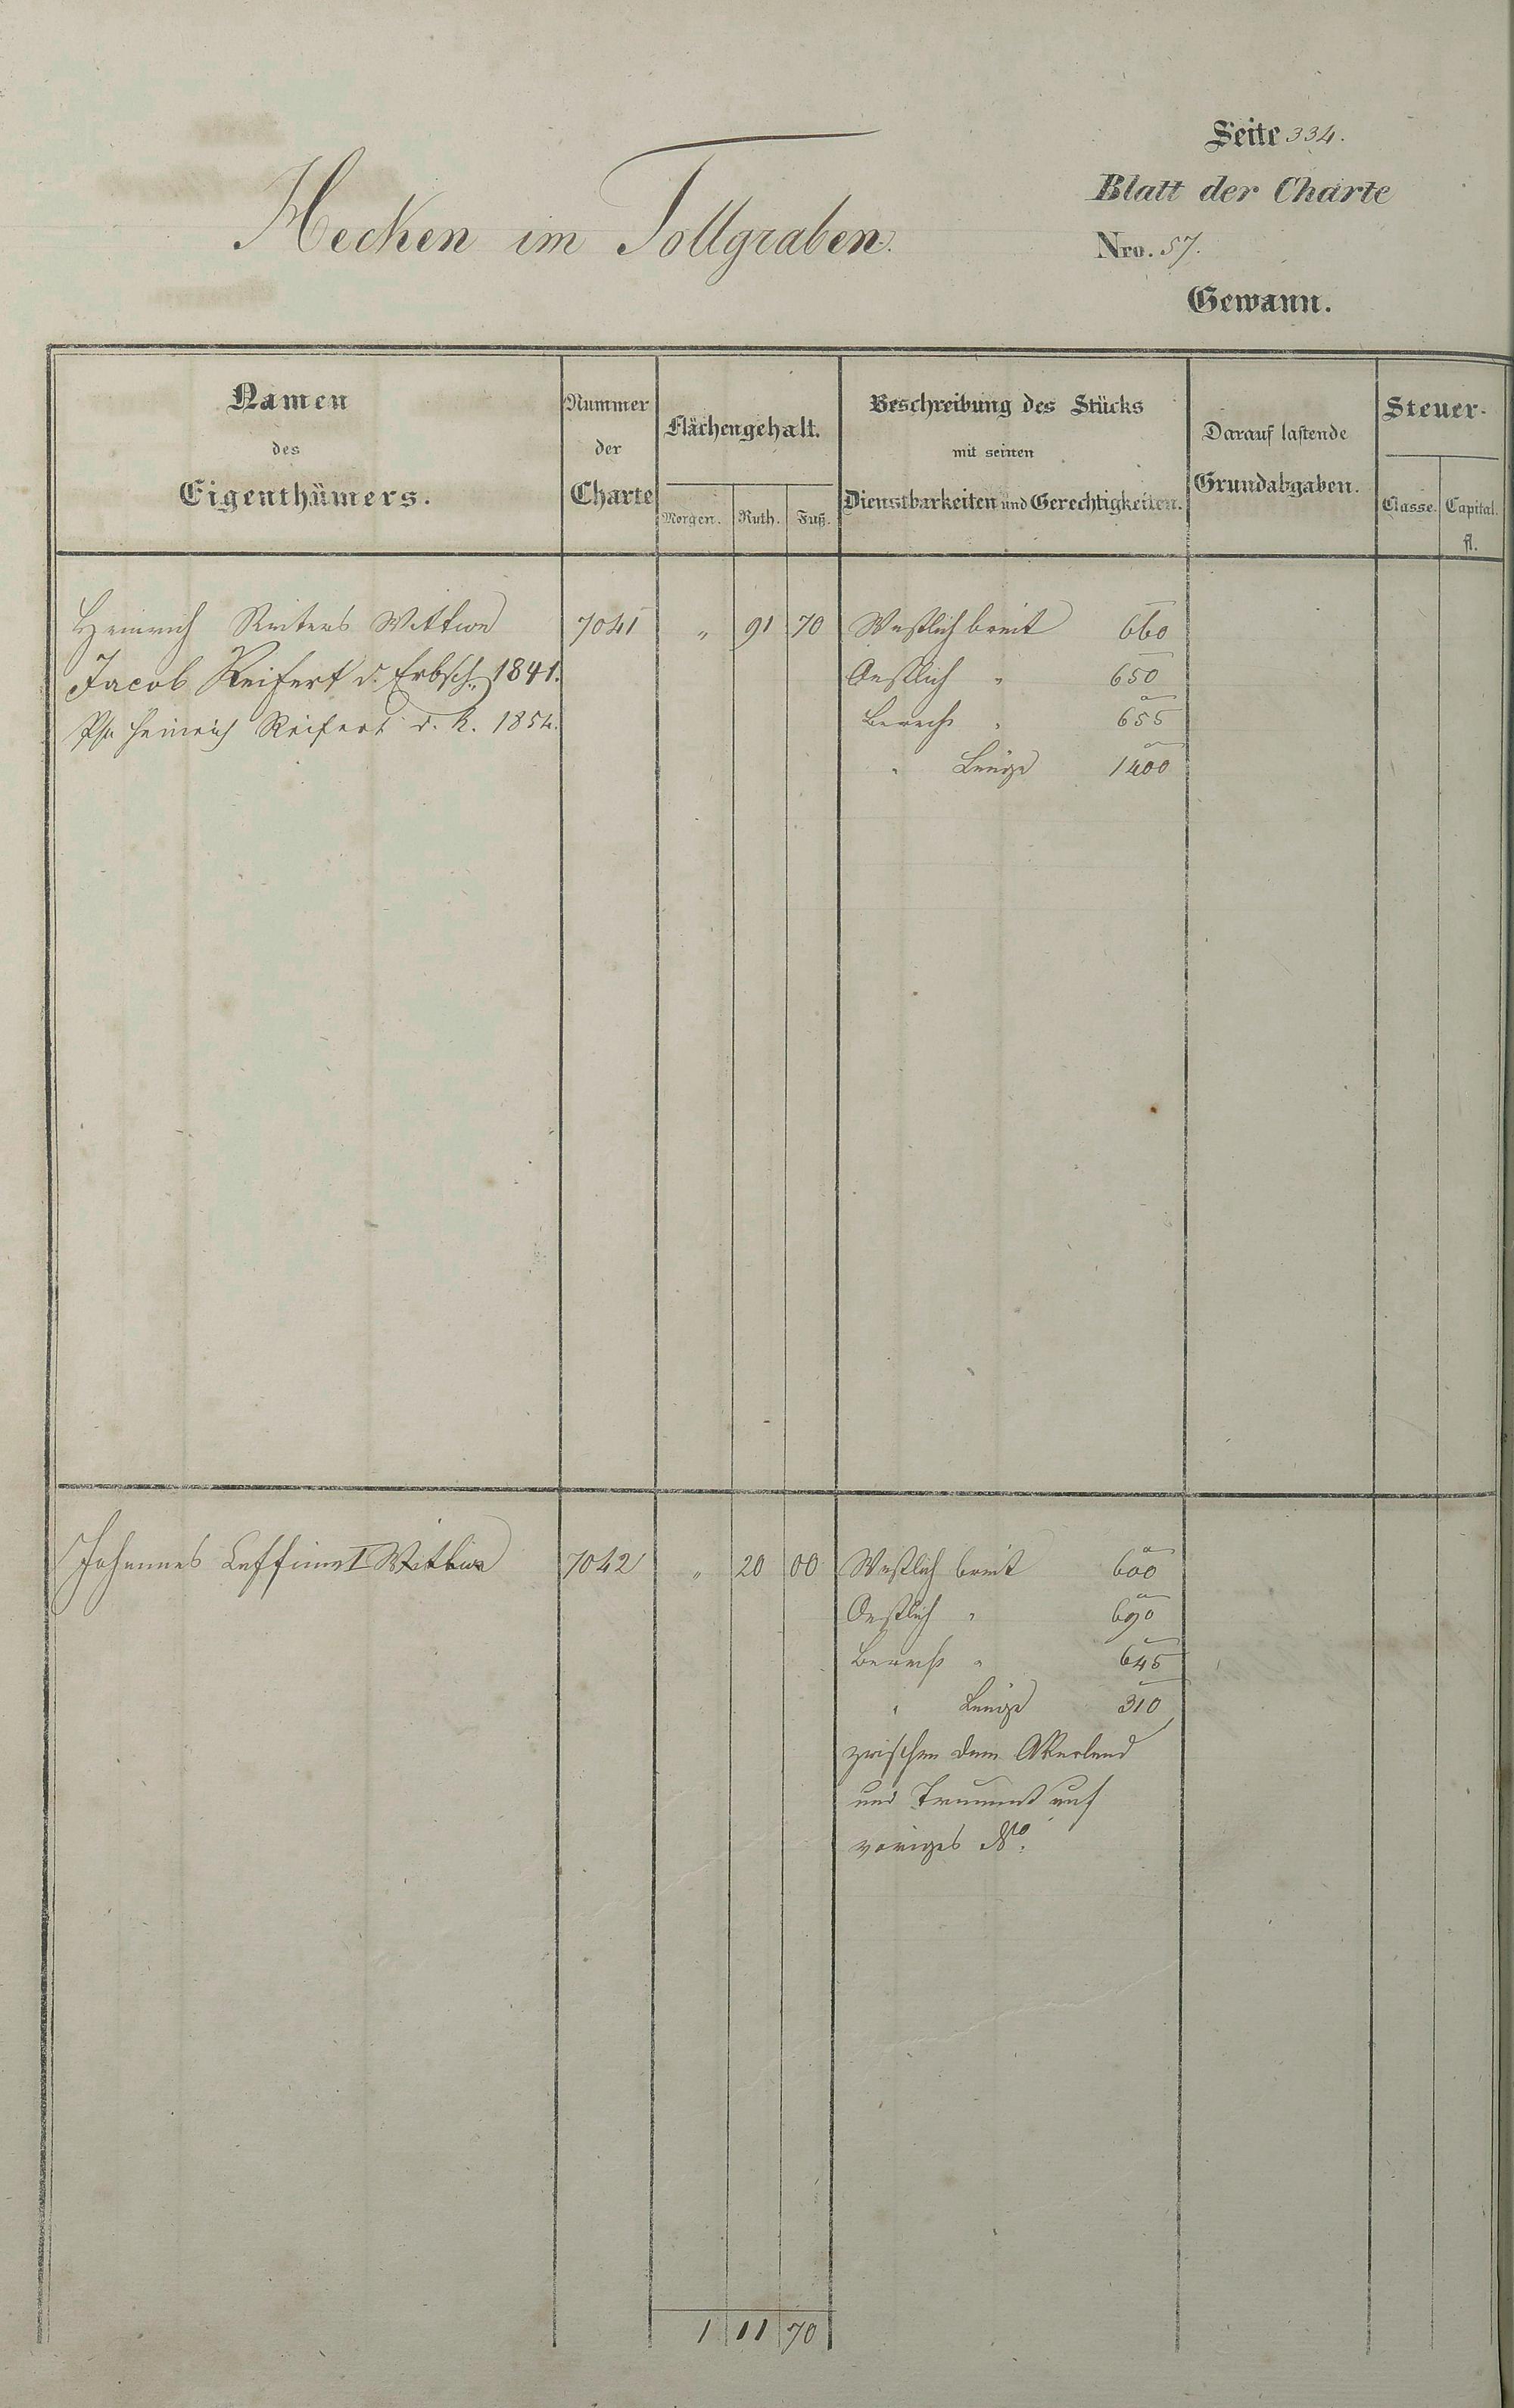 Seite 334.
Blatt der Charte
Hecken im Tollgraben.
Nro. 57.
Gewann.
Namen des Eigenthümers.
Nummer der Charte
Flächengehalt.
Morgen. Ruth. Fuß.
Beschreibung des Stücks
mit seinen
Dienstbarkeiten und Gerechtigkeiten.
Darauf lastende
Grundabgaben.
Steuer-
Classe. Capital.
fl.
Heinrich Reiters Wittwe 7041 " 91 70 Westlich breit 660
Jacob Reifert d. Erbsch. 1841. Oestlich " 650
Heinrich Reifert d. K. 1854. Berech " 655
" Länge 1400
Johannes I Wittwe 7042 " 20 00 Westlich breit 600
Oestlich " 690
Berech " 645
" Länge 310
zwischen dem Akerland
und auf
voriges No.
1 11 70